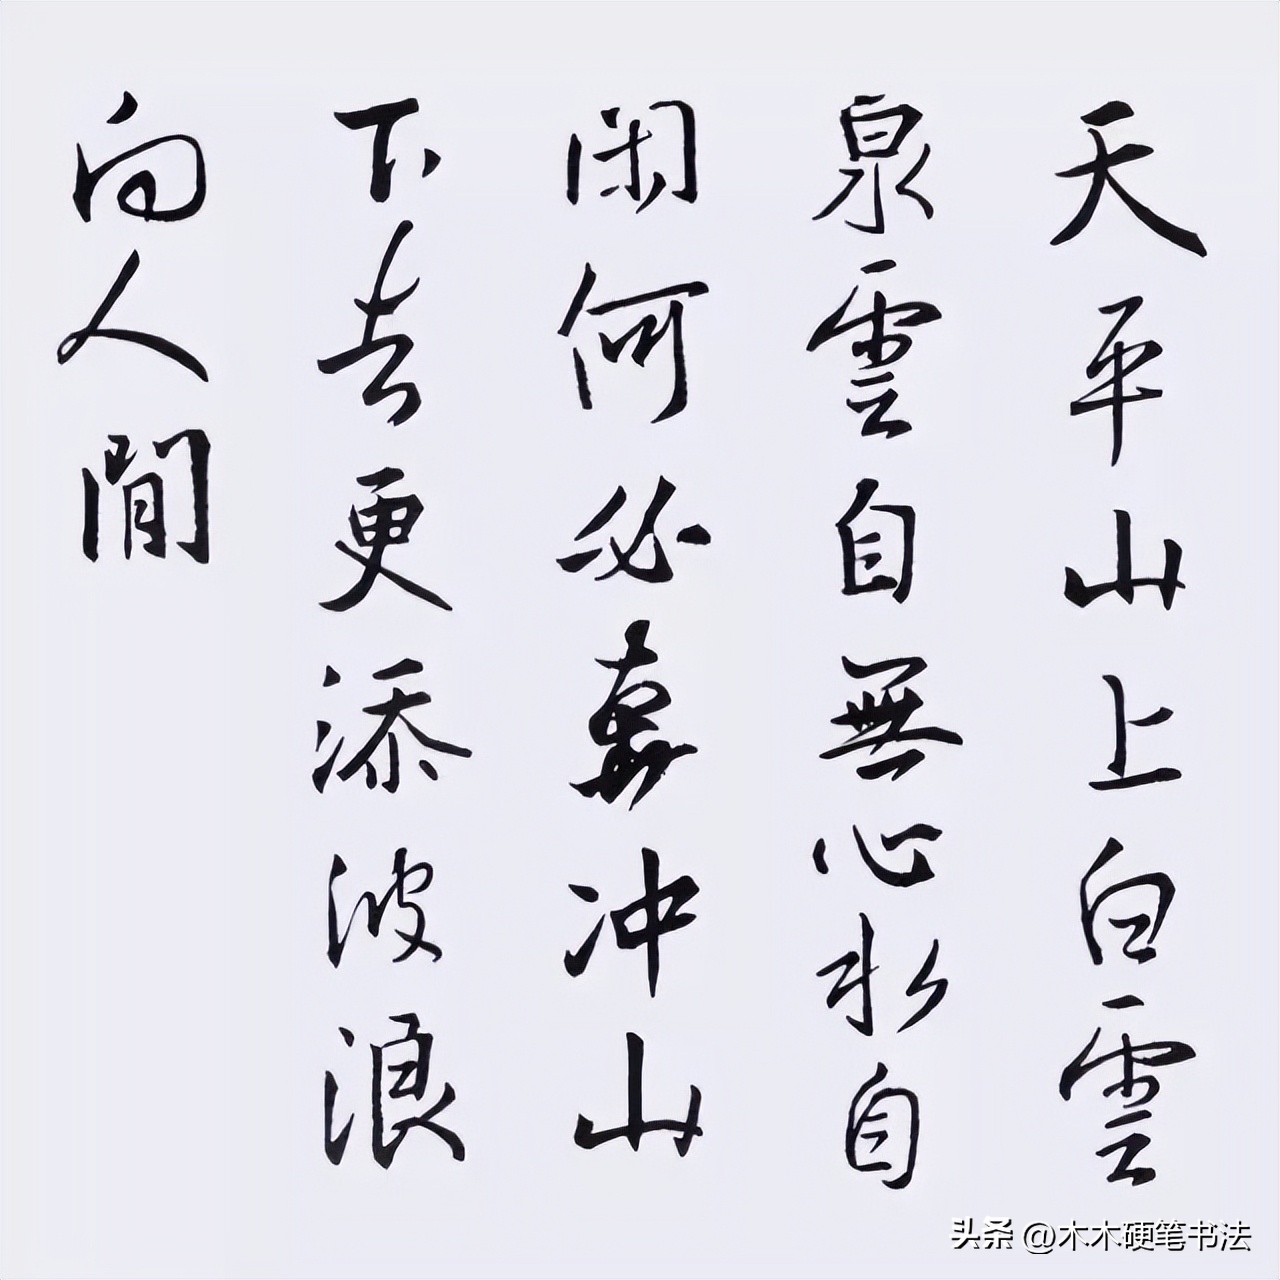 天平山上白雲
泉雲自無心水自
閑何必奔冲山
下去更添波浪
向人間
头条 @木木硬笔书法